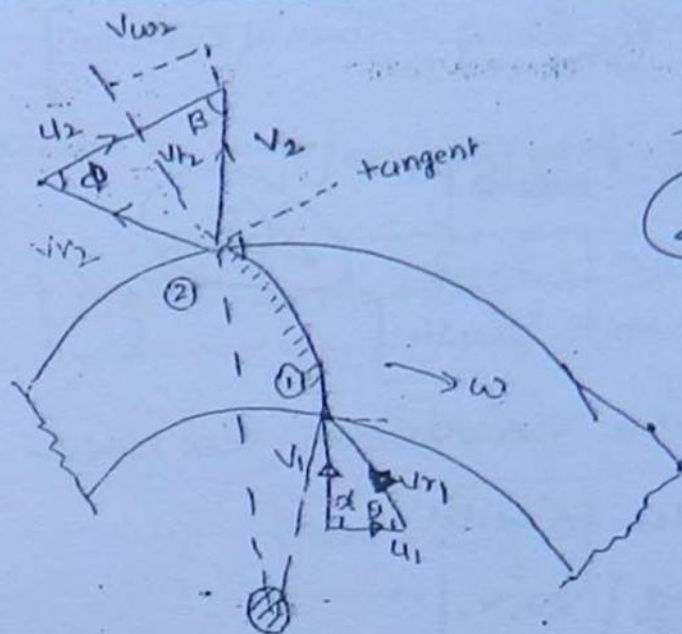 Vw2
u2
β
V2
Vf2
tangent
ϕ
Vr2
②
①
ω
V1
Vr1
α
θ
u1